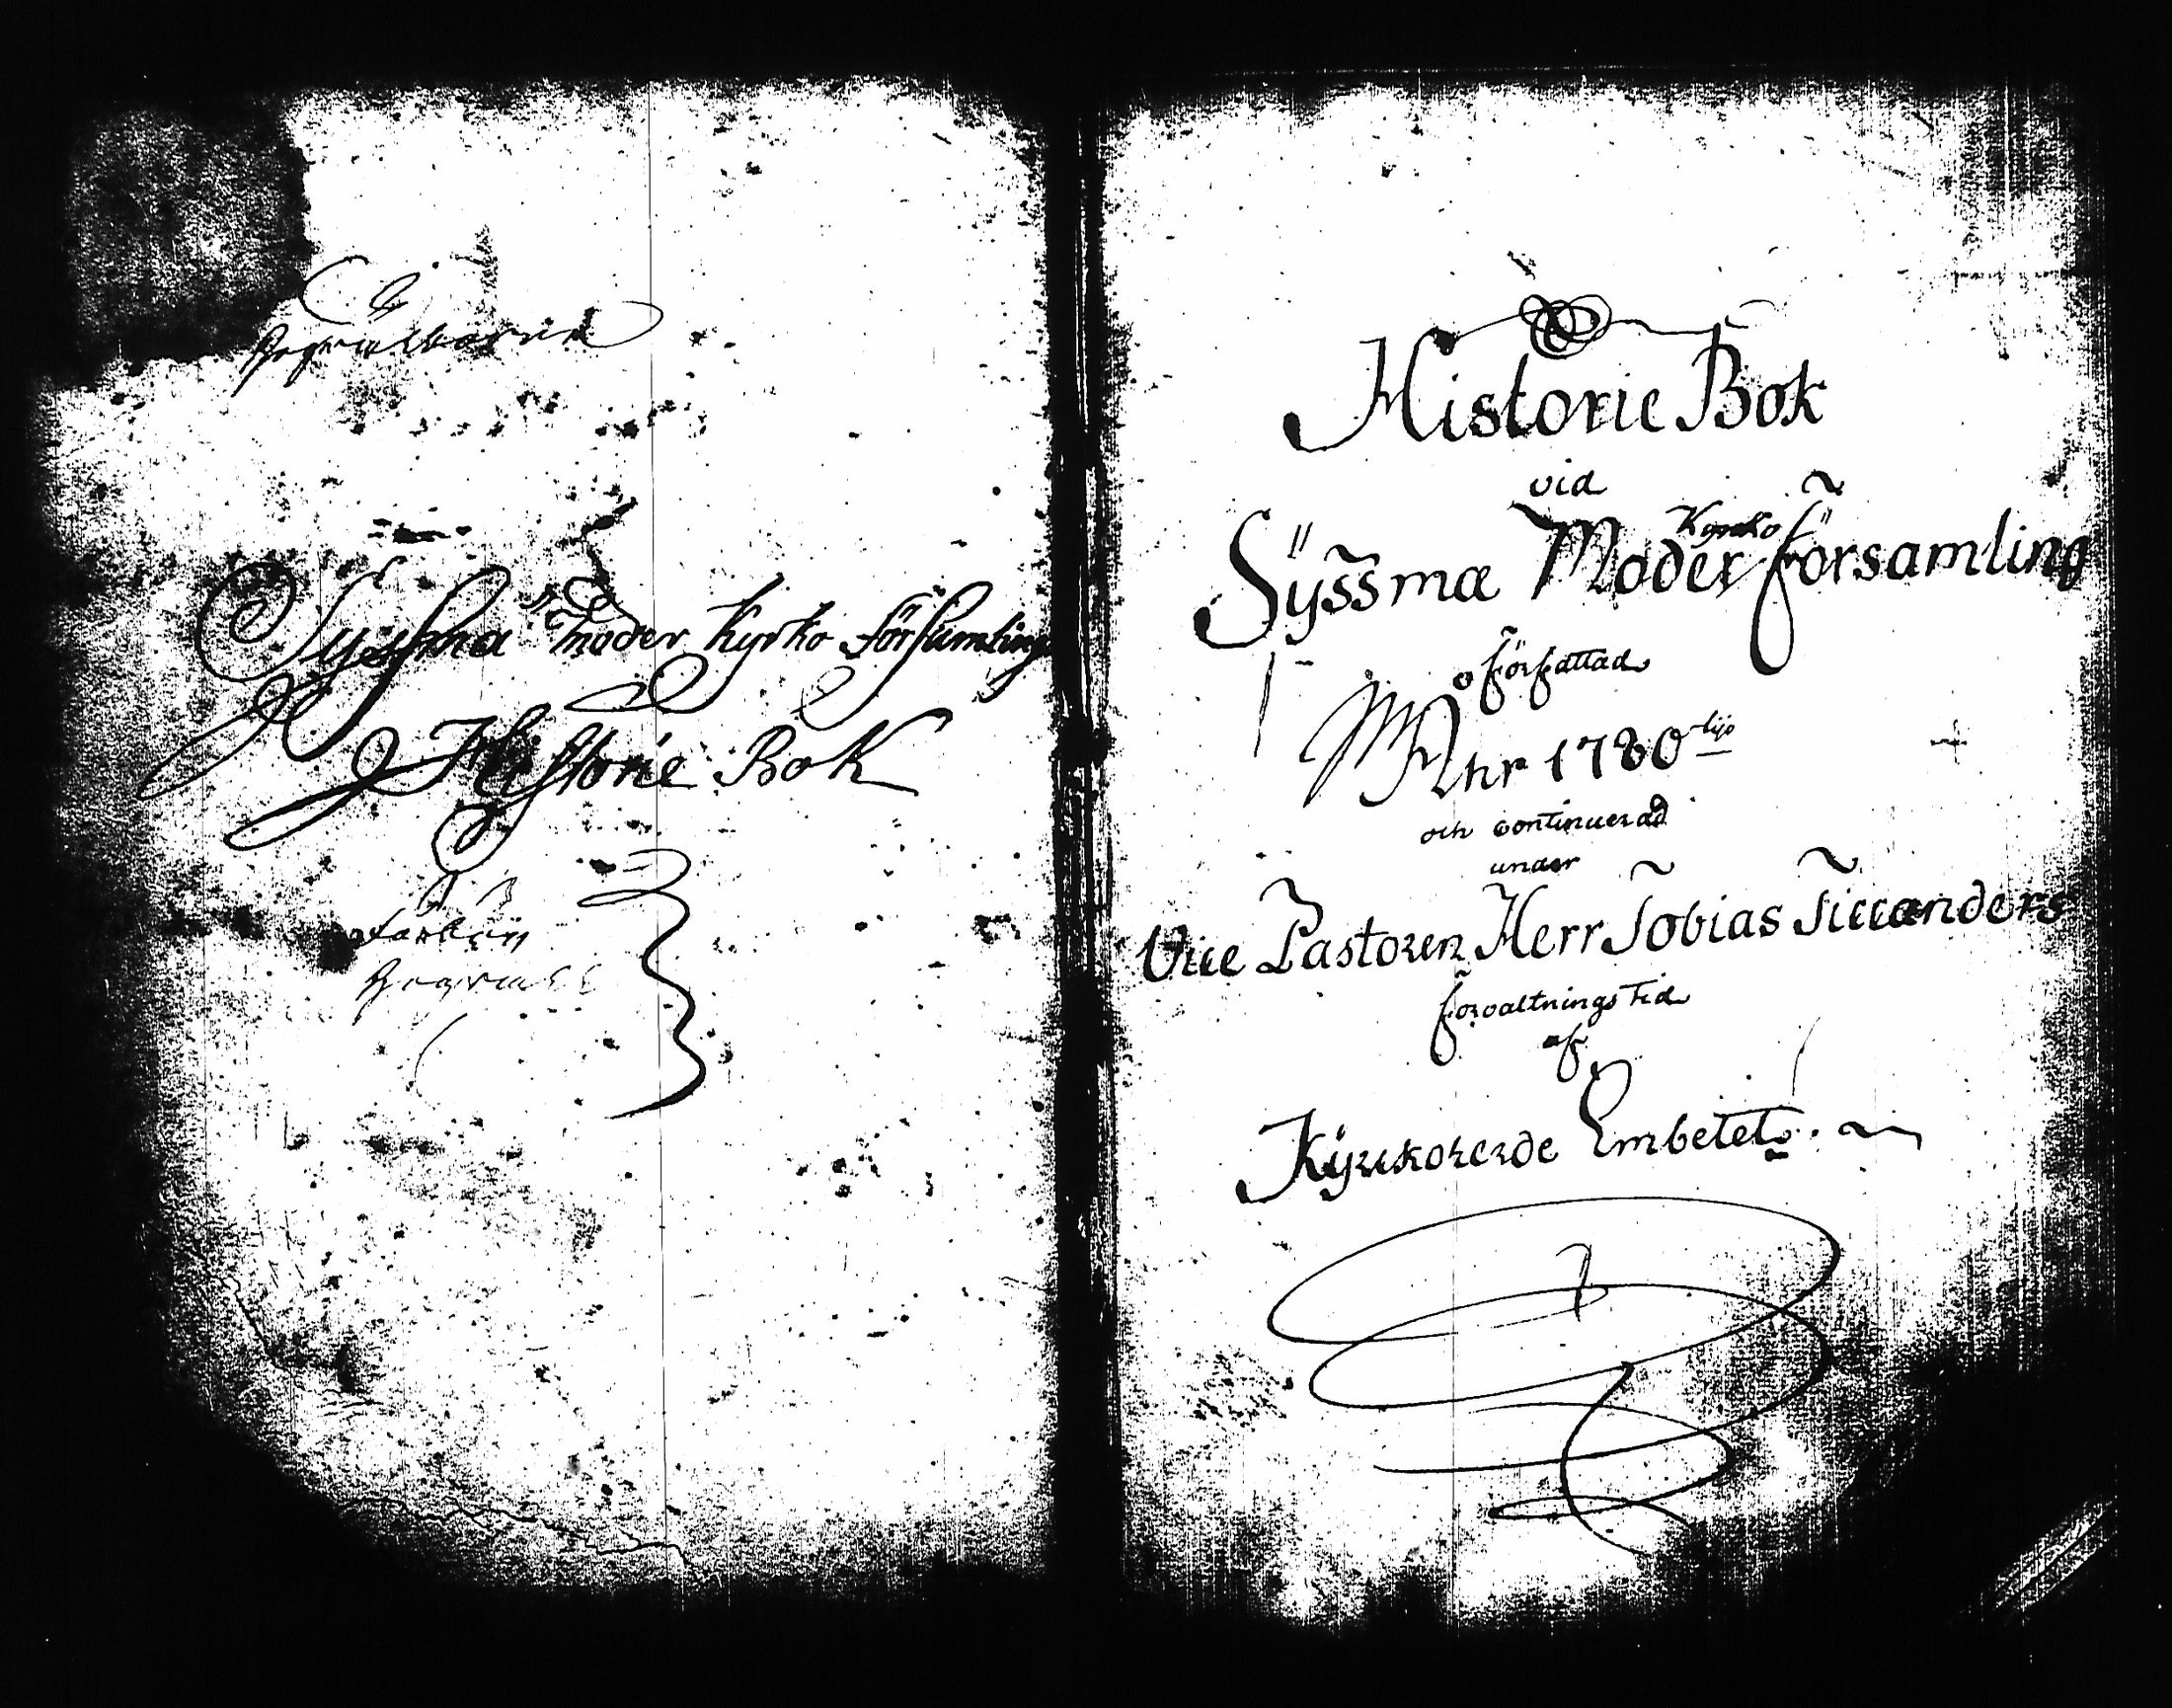 Syssma Moder Kyrko församling
Historie Bok
Historie Bok
vid
Sÿssmæ Moder Kyrko församling
författad
Åhr 1780
och continuerad
under
Vice Pastoren Herr Tobias Ticcanders
förvaltnings Tid
af
Kÿrckoherde Embetet